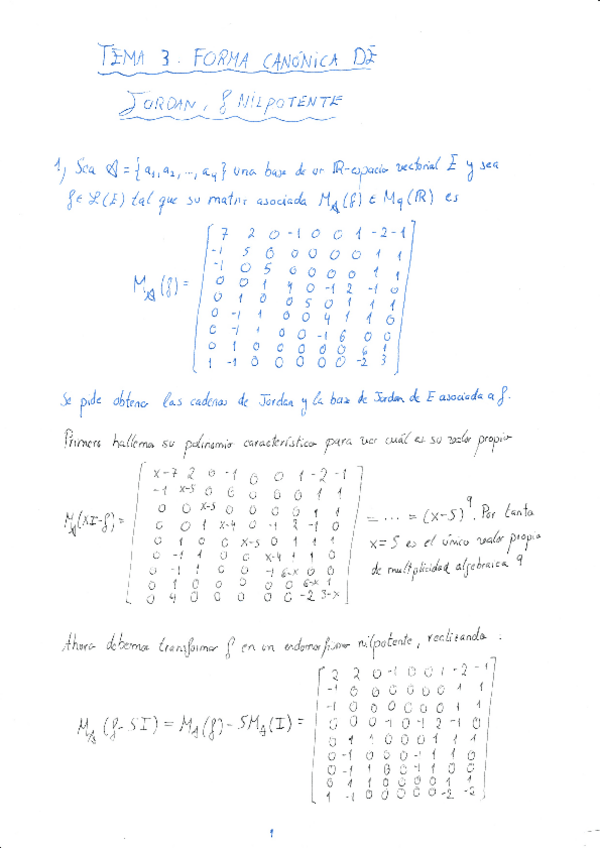 TEMA 3. FORMA CANÓNICA DE
JORDAN, f NILPOTENTE
1, Sea A = {a1, a2, ..., a9} una base de un IR-espacio vectorial E y sea
f ∈ L(E) tal que su matriz asociada M_A(f) ∈ M9(IR) es
M_A(f) =
7 2 0 -1 0 0 1 -2 -1
-1 5 0 0 0 0 0 1 1
-1 0 5 0 0 0 0 1 1
0 0 1 4 0 -1 2 -1 0
0 1 0 0 5 0 1 1 1
0 -1 1 0 0 4 1 1 0
0 -1 1 0 0 -1 6 0 0
0 1 0 0 0 0 0 6 1
1 -1 0 0 0 0 0 -2 3
Se pide obtener las cadenas de Jordan y la base de Jordan de E asociada a f.
Primero hallemos su polinomio característico para ver cuál es su valor propio
M_A(XI-f) =
x-7 2 0 -1 0 0 1 -2 -1
-1 x-5 0 0 0 0 0 1 1
0 0 x-5 0 0 0 0 1 1
0 0 1 x-4 0 -1 2 -1 0
0 1 0 0 x-5 0 1 1 1
0 -1 1 0 0 x-4 1 1 0
0 -1 1 0 0 -1 6-x 0 0
0 1 0 0 0 0 0 6-x 1
0 4 0 0 0 0 0 -2 3-x
= ... = (x-5)^9. Por tanto
x=5 es el único valor propio
de multiplicidad algebraica 9
Ahora debemos transformar f en un endomorfismo nilpotente, realizando:
M_A(f-5I) = M_A(f) - 5M_A(I) =
2 2 0 -1 0 0 1 -2 -1
-1 0 0 0 0 0 0 1 1
-1 0 0 0 0 0 0 1 1
0 0 0 -1 0 -1 2 -1 0
0 1 1 0 0 0 1 1 1
0 -1 0 0 0 -1 1 1 0
0 -1 1 0 0 -1 1 0 0
0 1 1 0 0 0 0 1 1
1 -1 0 0 0 0 0 -2 -2
1